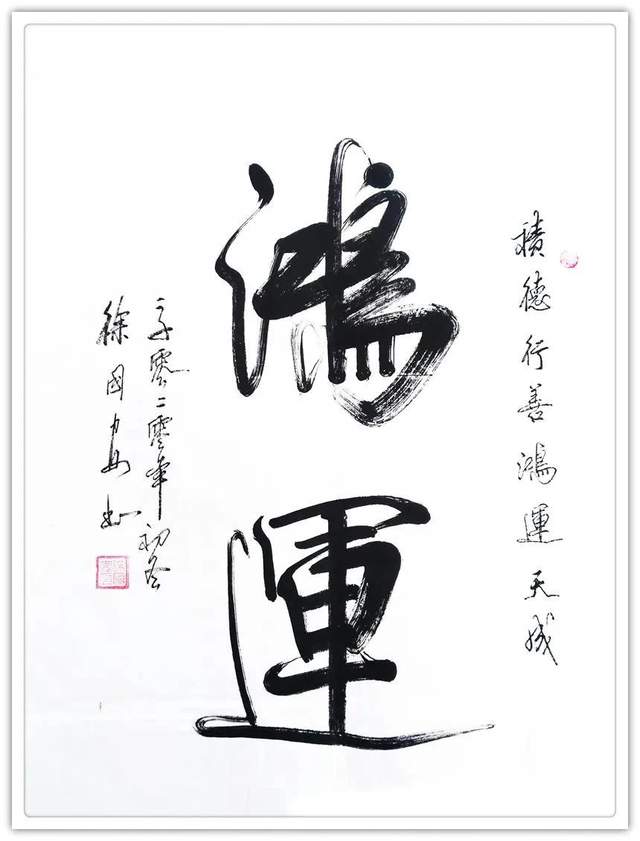 積德行善鴻運天成
鴻運
零二零年初冬
徐國